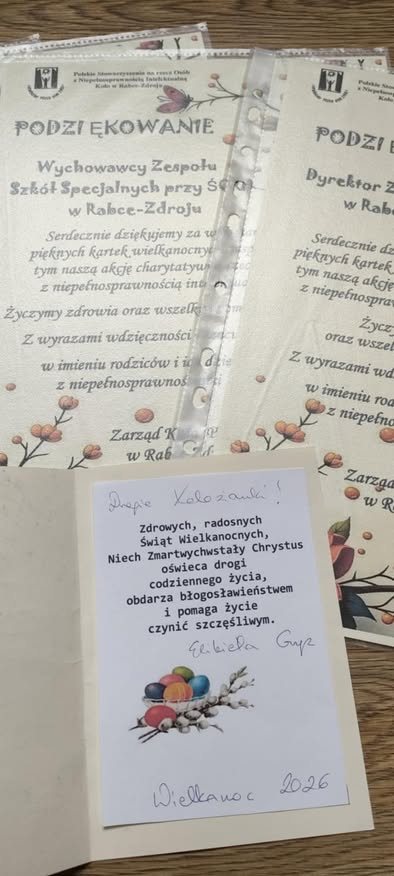 Polskie Stowarzyszenie na rzecz Osób
z Niepełnosprawnością Intelektualną
Koło w Rabce-Zdroju
PODZIĘKOWANIE
Wychowawcy Zespołu
Szkół Specjalnych przy
w Rabce-Zdroju
Serdecznie dziękujemy za
pięknych kartek wielkanocnyc
tym naszą akcję charytatyw
z niepełnosprawnością inte
Życzymy zdrowia oraz wszelk
Z wyrazami wdzięczności
w imieniu rodziców i
z niepełnosprawnoś
Zarząd K
w Rab
Polskie Stowarzyszenie na
z Niepełnosprawności
Koło w Rab
PODZI
Dyrektor Z
w Rab
Serdecznie dz
pięknych kartek
tym naszą akcję
z niepełnospraw
Życzy
oraz wszel
Z wyrazami wd
w imieniu rod
z niepełno
Zarząd
w R
Drogie Koleżanki!
Zdrowych, radosnych
Świąt Wielkanocnych,
Niech Zmartwychwstały Chrystus
oświeca drogi
codziennego życia,
obdarza błogosławieństwem
i pomaga życie
czynić szczęśliwym.
Elżbieta
Wielkanoc 2026